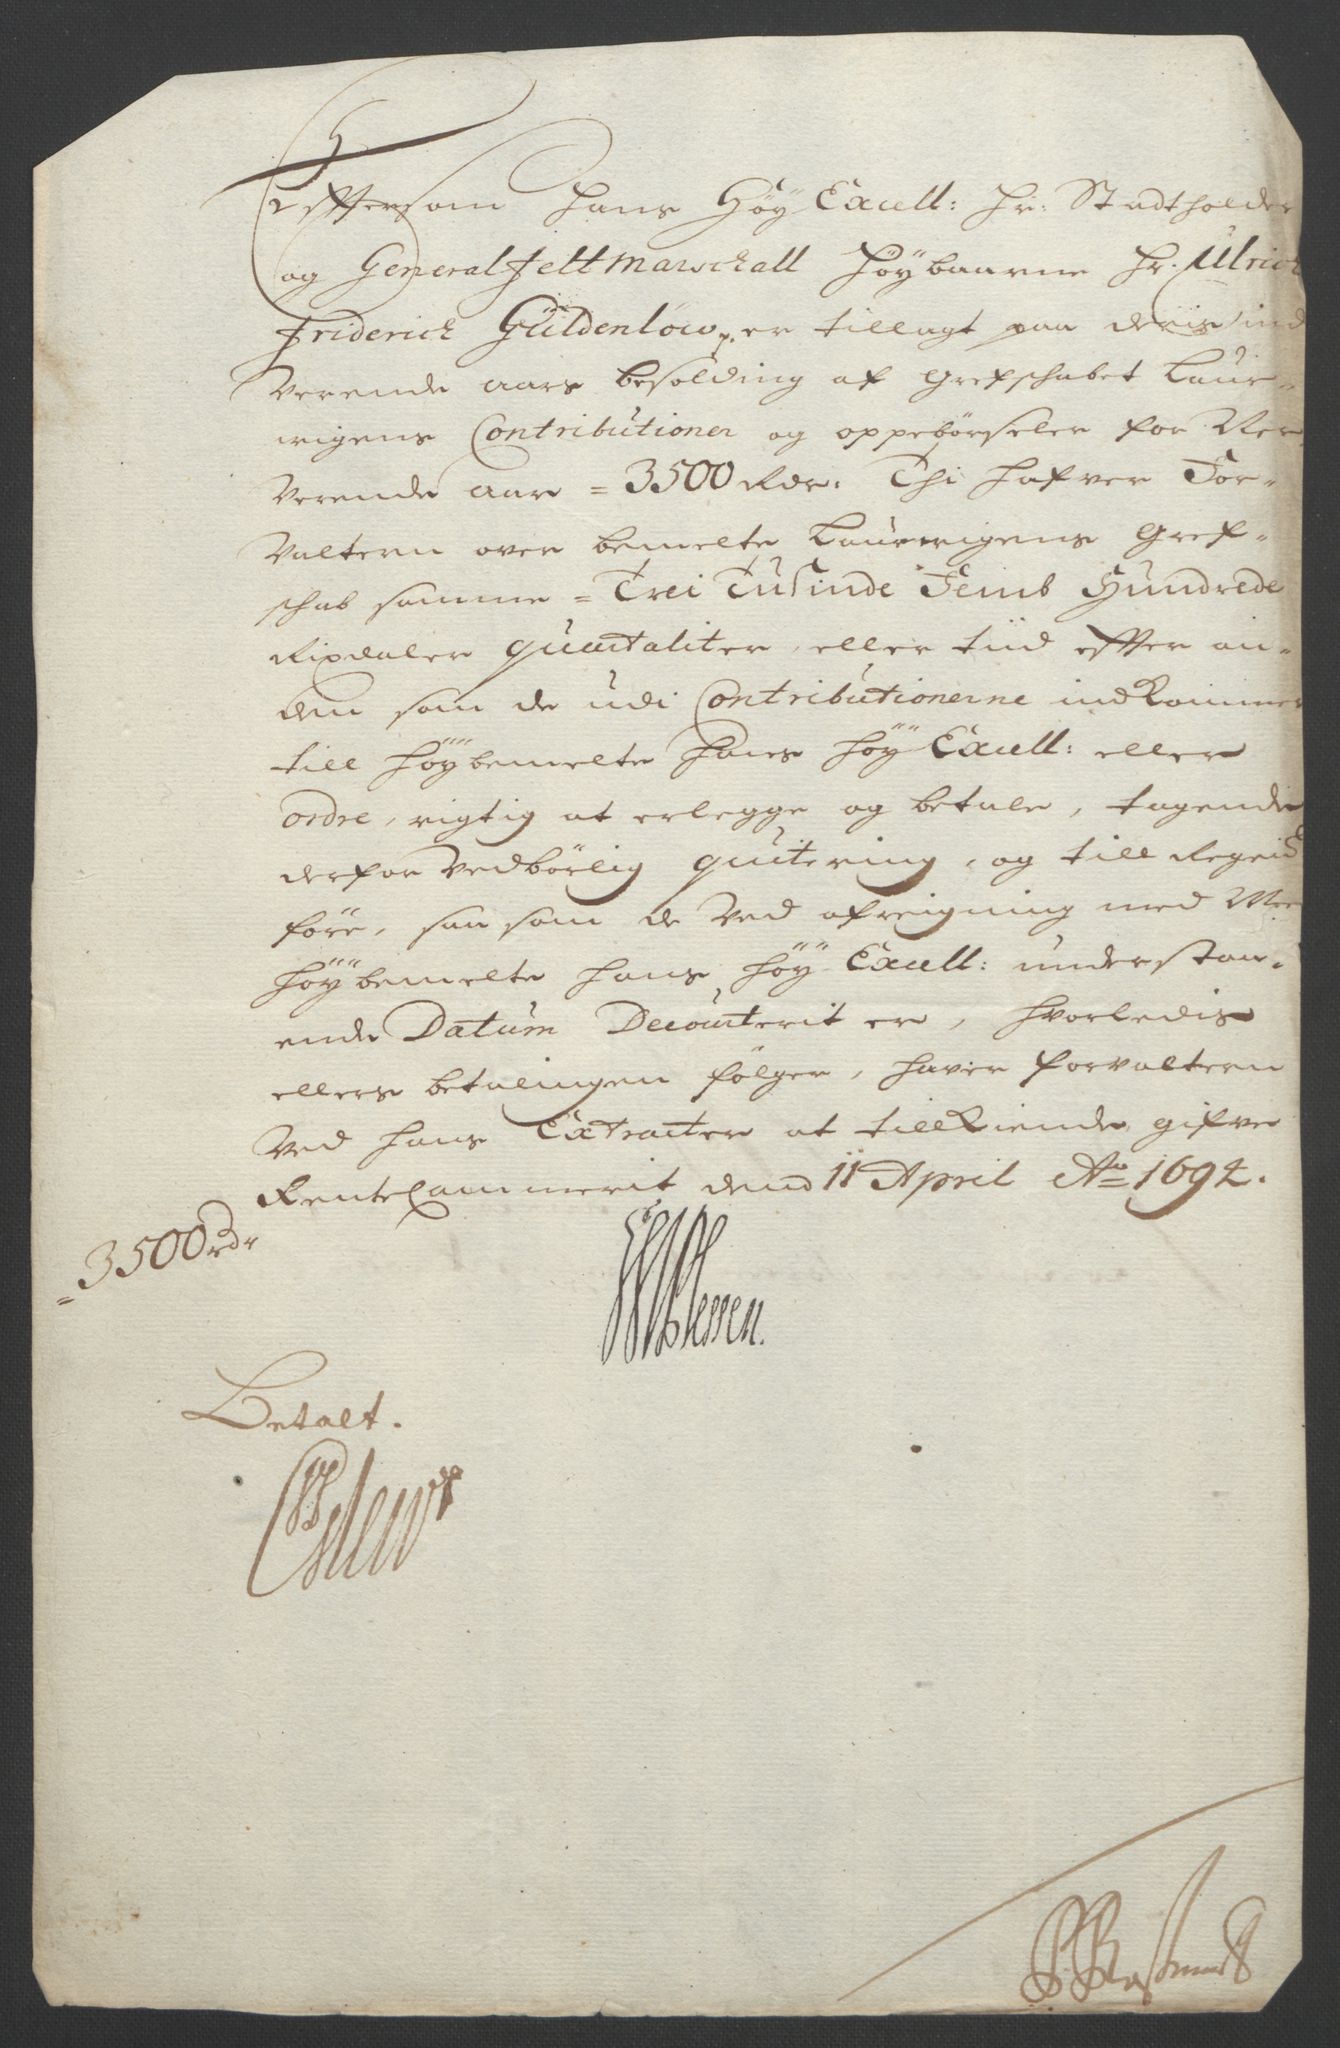 Effterson hans Höy Excell: Hr: Stadtholder
og General feltmarschall Höybaarne Hr. Ulrich
friderich Güldenlöw p. er tillagt paa deris ind
verende aars besolding af Grefschabet Laur-
wigens Contributioner og oppebörseler for Ner
verende aar = 3500 Rdr: Thi hafver For-
valtern over bemelte Laurwigens Gref-
schab samme = Trei Tusinde Femb Hundrede
Rixdaler quartaliter, eller tiid effter an-
den som de udi Contributionerne indkommer
till höybemelte hans höy Excell: eller
ordre, rigtig at erlegge og betale, tagende
derfor vedbörlig quitering, og till Regensk
före, saa som de ved afreigning med
höybemelte hans höy Excell: understaa-
ende Datum Decourterit er, hvorledis
ellers betalingen fölger, haver forvaltern
ved hans Extracter at tillkiende gifve
RenteCammerit dend 11 April Ao 1692.
= 3500 rdr
Plessen.
Betalt.